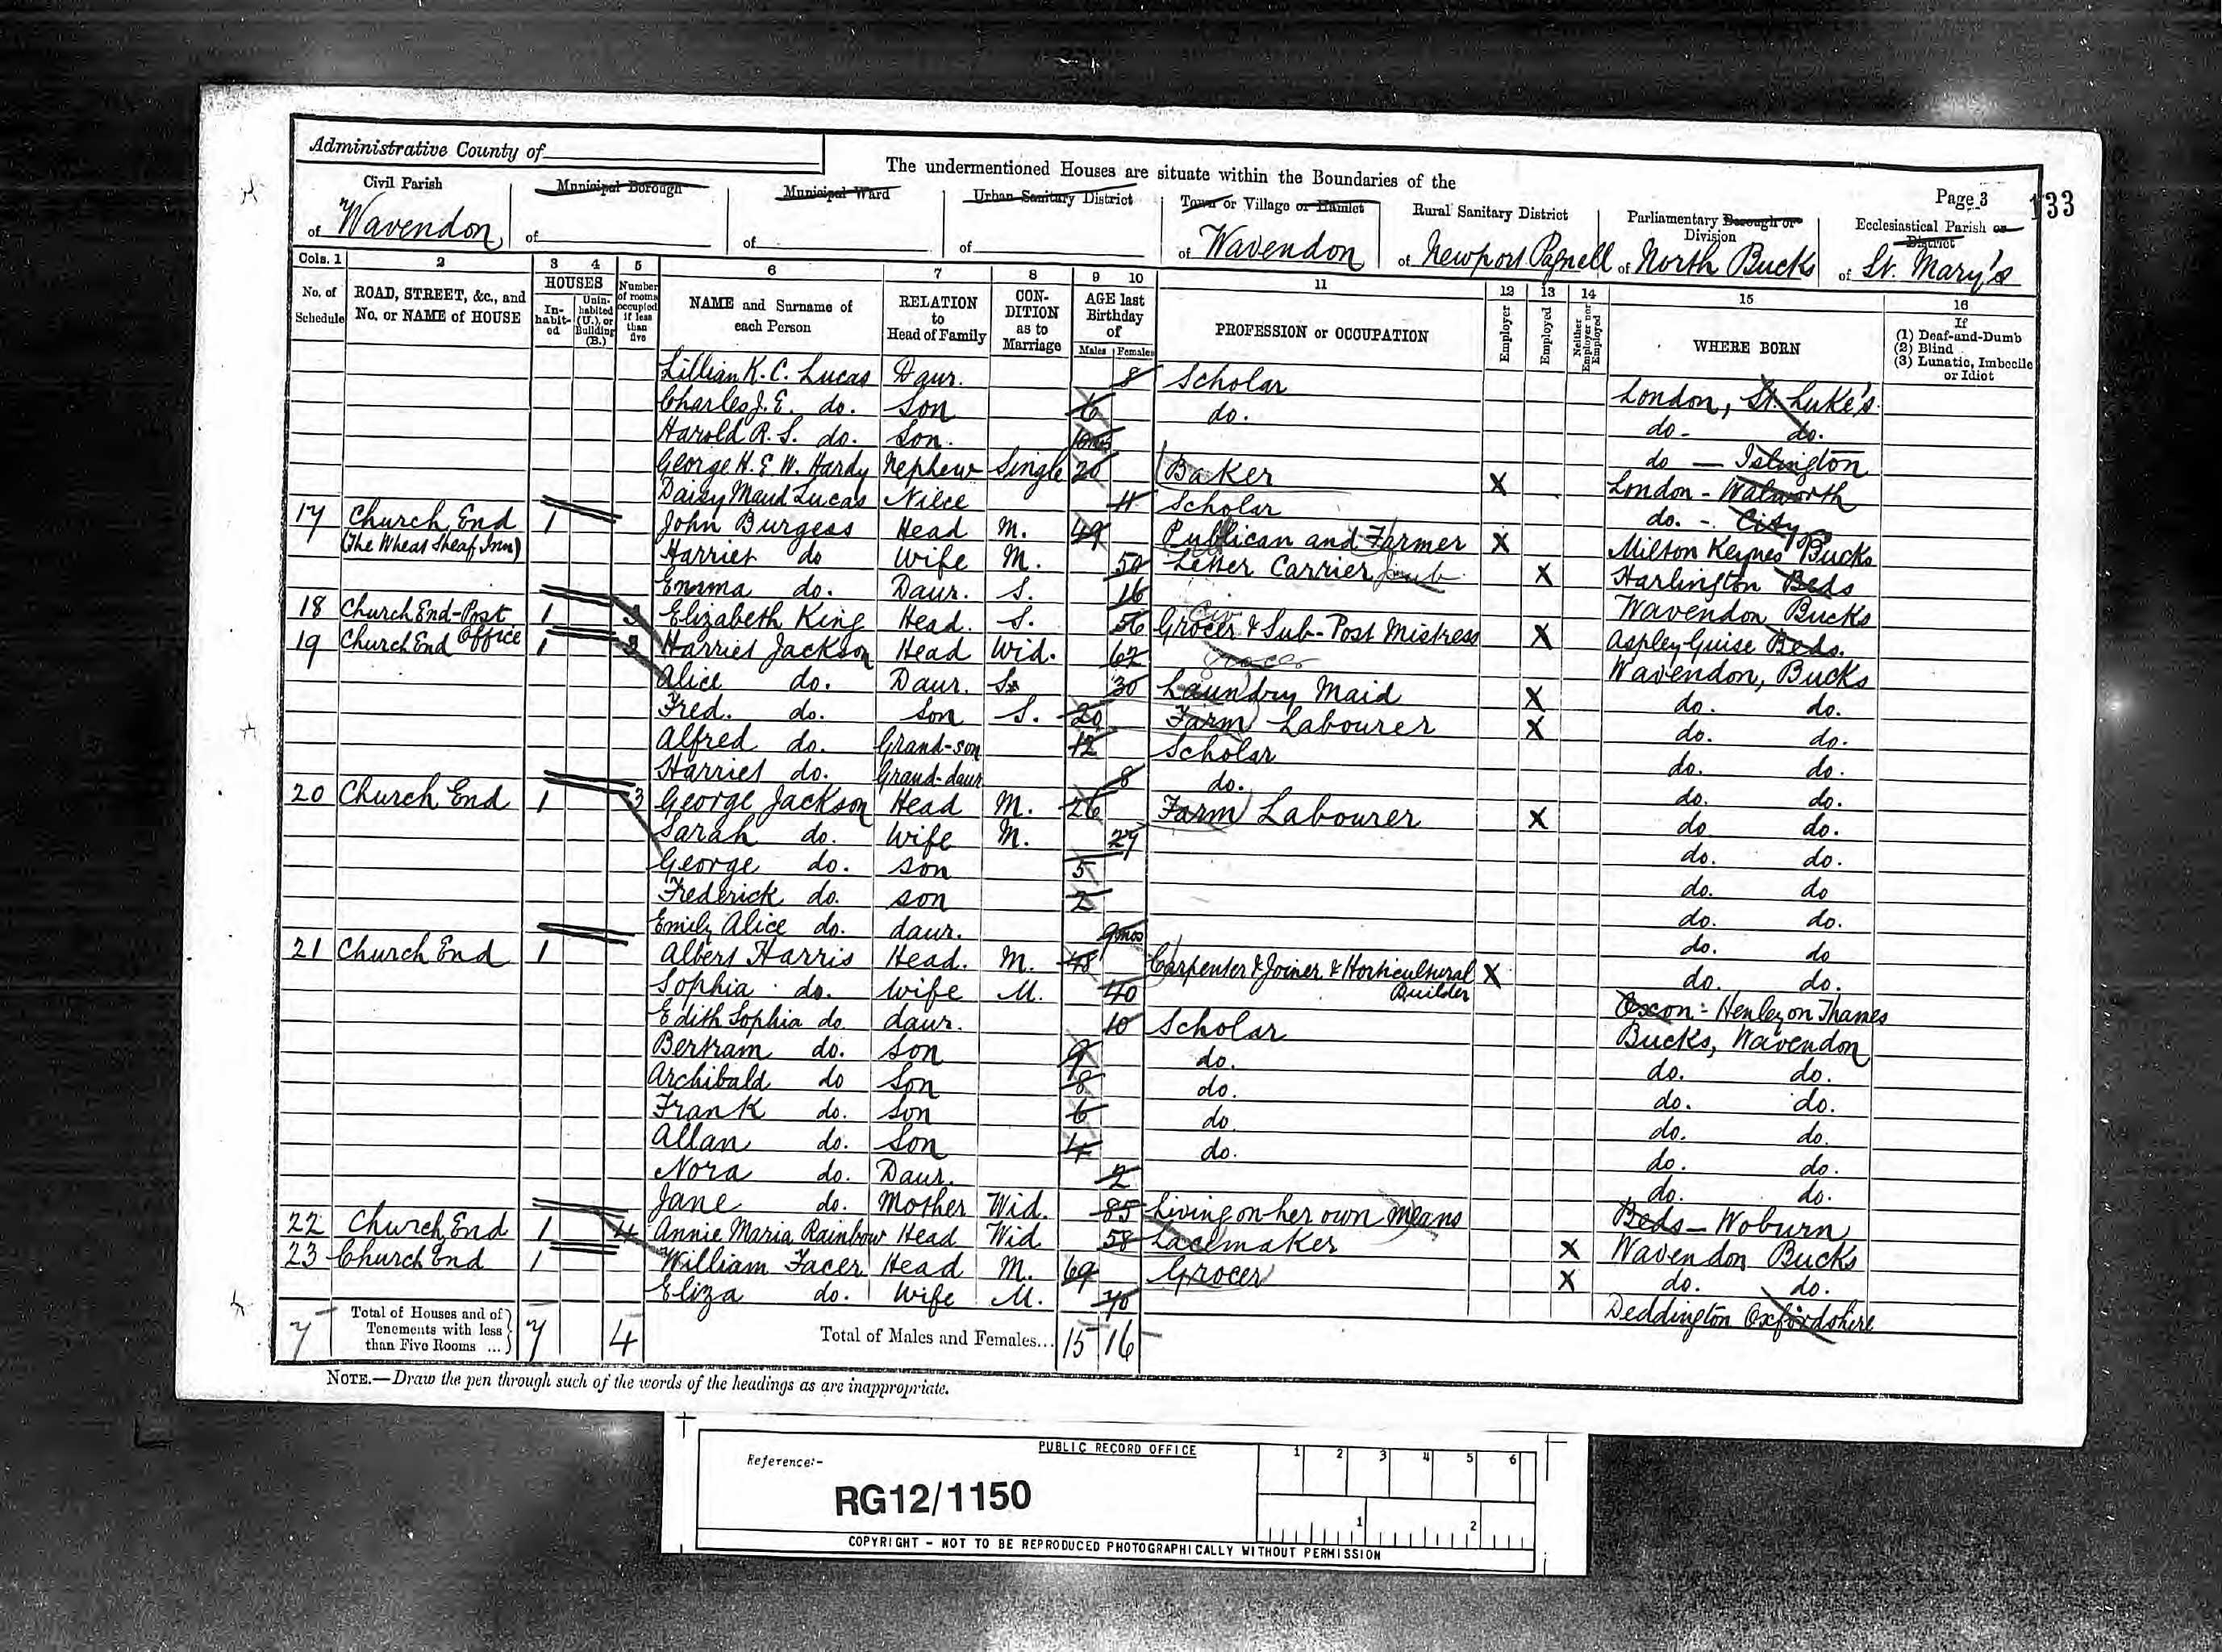 Administrative County of
The undermentioned Houses are situate within the Boundaries of the
Page 3
133
Civil Parish of Wavendon
Municipal Borough of
Municipal Ward of
Urban Sanitary District of
Town or Village or Hamlet of Wavendon
Rural Sanitary District of Newport Pagnell
Parliamentary Borough or Division of North Bucks
Ecclesiastical Parish or District of St. Mary's
Cols. 1 2 3 4 5 6 7 8 9 10 11 12 13 14 15 16
No. of Schedule
ROAD, STREET, &c., and No. or NAME of HOUSE
HOUSES
In-habit-ed
Unin-habited (U.), or Building (B.)
Number of rooms occupied if less than five
NAME and Surname of each Person
RELATION to Head of Family
CON-DITION as to Marriage
AGE last Birthday of
Males Females
PROFESSION or OCCUPATION
Employer
Employed
Neither Employer nor Employed
WHERE BORN
If (1) Deaf-and-Dumb (2) Blind (3) Lunatic, Imbecile or Idiot
Lillian K. C. Lucas Daur. 8 Scholar London, St. Luke's
Charles J. E. do. Son 6 do. do. do.
Harold R. S. do. Son. 10mos do — Islington
George H. E. W. Hardy Nephew Single 20 Baker X London - Walworth
Daisy Maud Lucas Niece 11 Scholar do. - City
17 Church End (The Wheat Sheaf Inn) 1 John Burgess Head M. 49 Publican and Farmer X Milton Keynes Bucks
Harriet do Wife M. 50 Letter Carrier X Harlington Beds
Emma do. Daur. S. 16 Wavendon Bucks
18 Church End-Post Office 1 3 Elizabeth King Head. S. 56 Grocer & Sub-Post Mistress X Aspley Guise Beds.
19 Church End 1 3 Harriet Jackson Head Wid. 62 Grocer Wavendon, Bucks
Alice do. Daur. S. 30 Laundry Maid X do. do.
Fred. do. Son S. 20 Farm Labourer X do. do.
Alfred do. Grand-son 12 Scholar do. do.
Harriet do. Grand-daur 8 do. do. do.
20 Church End 1 3 George Jackson Head M. 26 Farm Labourer X do do.
Sarah do. Wife M. 27 do. do.
George do. son 5 do. do
Frederick do. son 2 do. do.
Emily Alice do. daur. 9mos do. do
21 Church End 1 Albert Harris Head. M. 48 Carpenter & Joiner & Horticultural Builder X do. do.
Sophia do. Wife M. 40 Oxon - Henley on Thames
Edith Sophia do daur. 10 Scholar Bucks, Wavendon
Bertram do. Son 9 do. do. do.
Archibald do Son 8 do. do. do.
Frank do. son 6 do do. do.
Allan do. Son 4 do. do. do.
Nora do. Daur. 2 do. do.
Jane do. Mother Wid. 85 Living on her own means Beds - Woburn
22 Church End 1 4 Annie Maria Rainbow Head Wid 58 Lacemaker X Wavendon Bucks
23 Church End 1 William Facer Head M. 69 Grocer X do. do.
Eliza do. Wife M. 70 Deddington Oxfordshire
7 Total of Houses and of Tenements with less than Five Rooms ... 7 4 Total of Males and Females... 15 16
NOTE.—Draw the pen through such of the words of the headings as are inappropriate.
PUBLIC RECORD OFFICE
1 2 3 4 5 6
Reference:-
RG12/1150
1 2
COPYRIGHT - NOT TO BE REPRODUCED PHOTOGRAPHICALLY WITHOUT PERMISSION